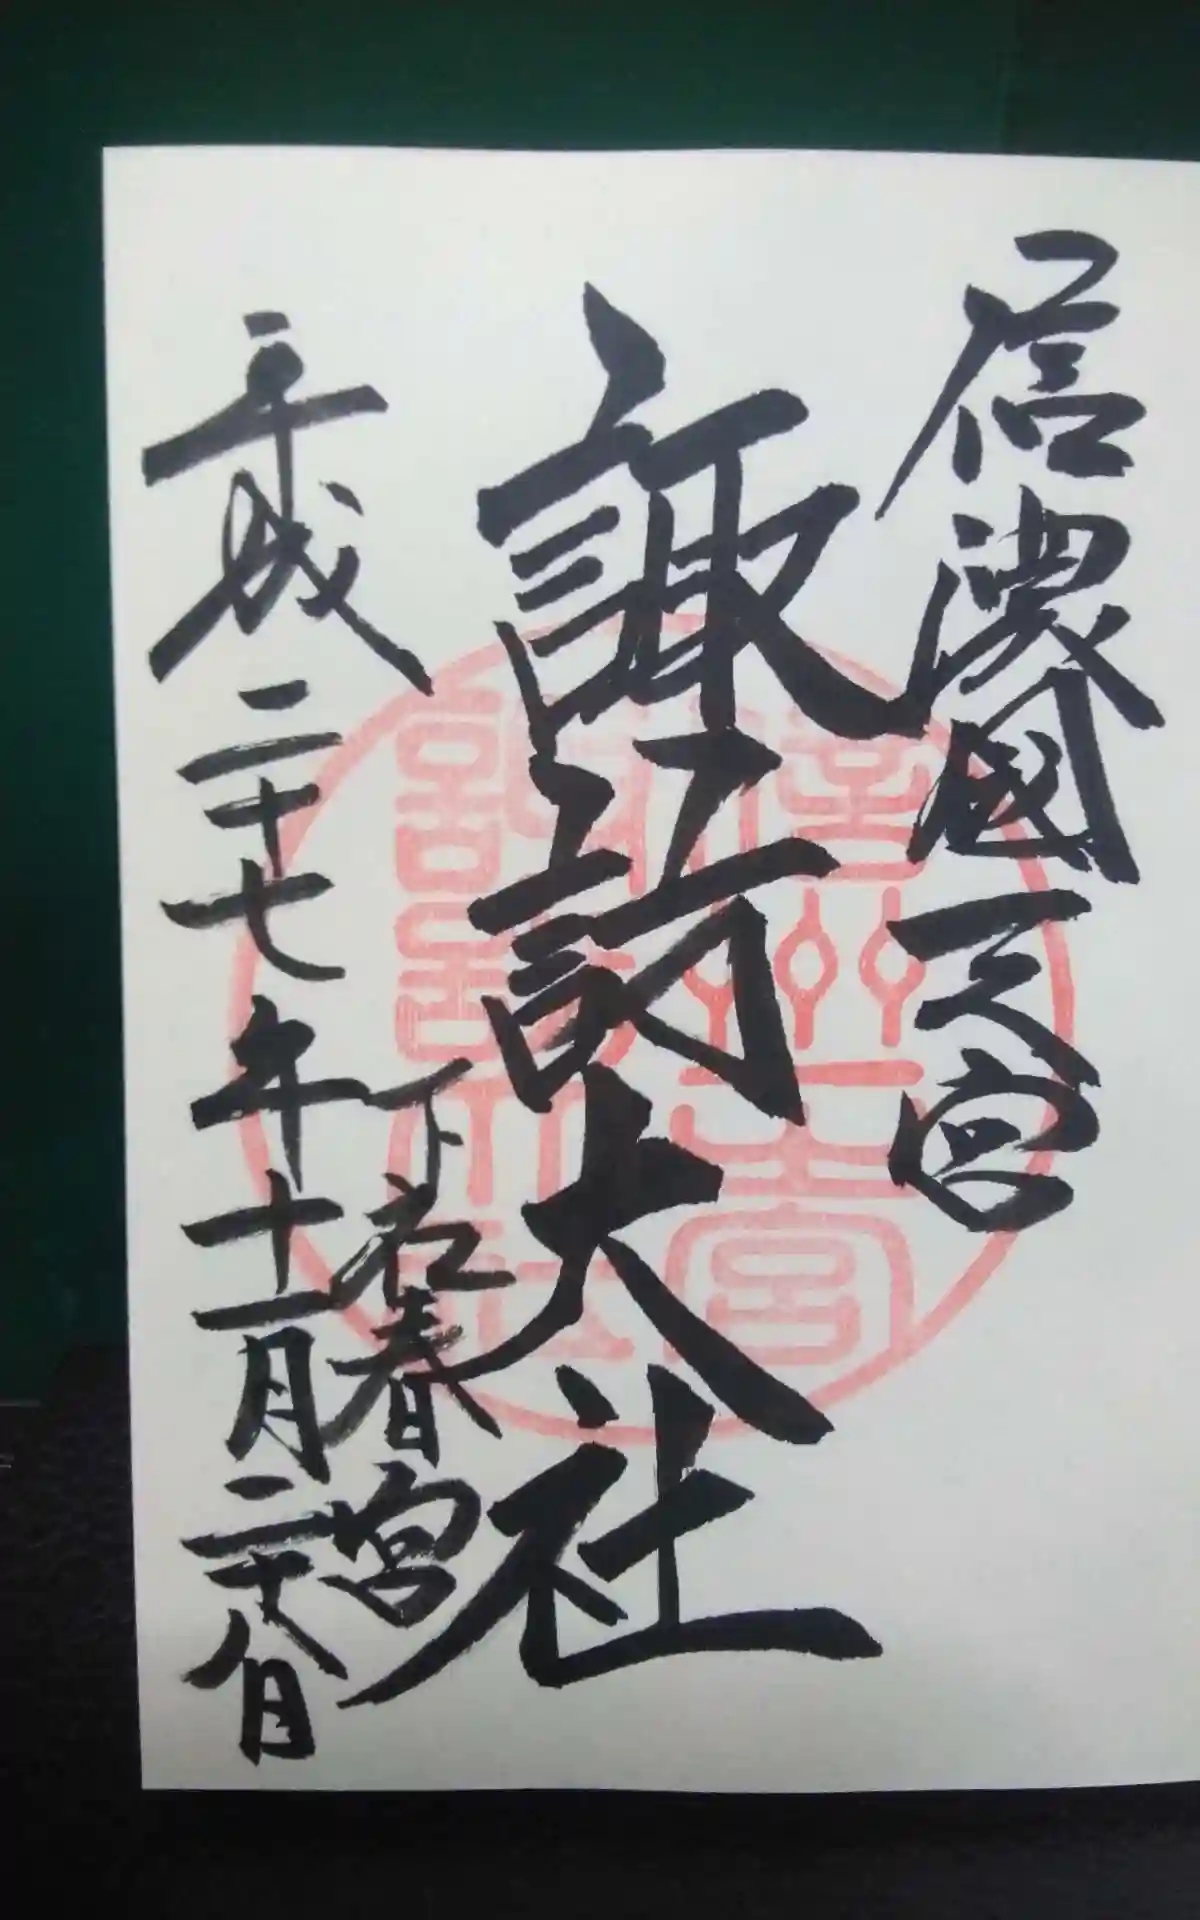 信濃國一之宮
諏訪大社
下社春宮
平成二十七年十一月二十八日
信州一之宮
諏訪大社